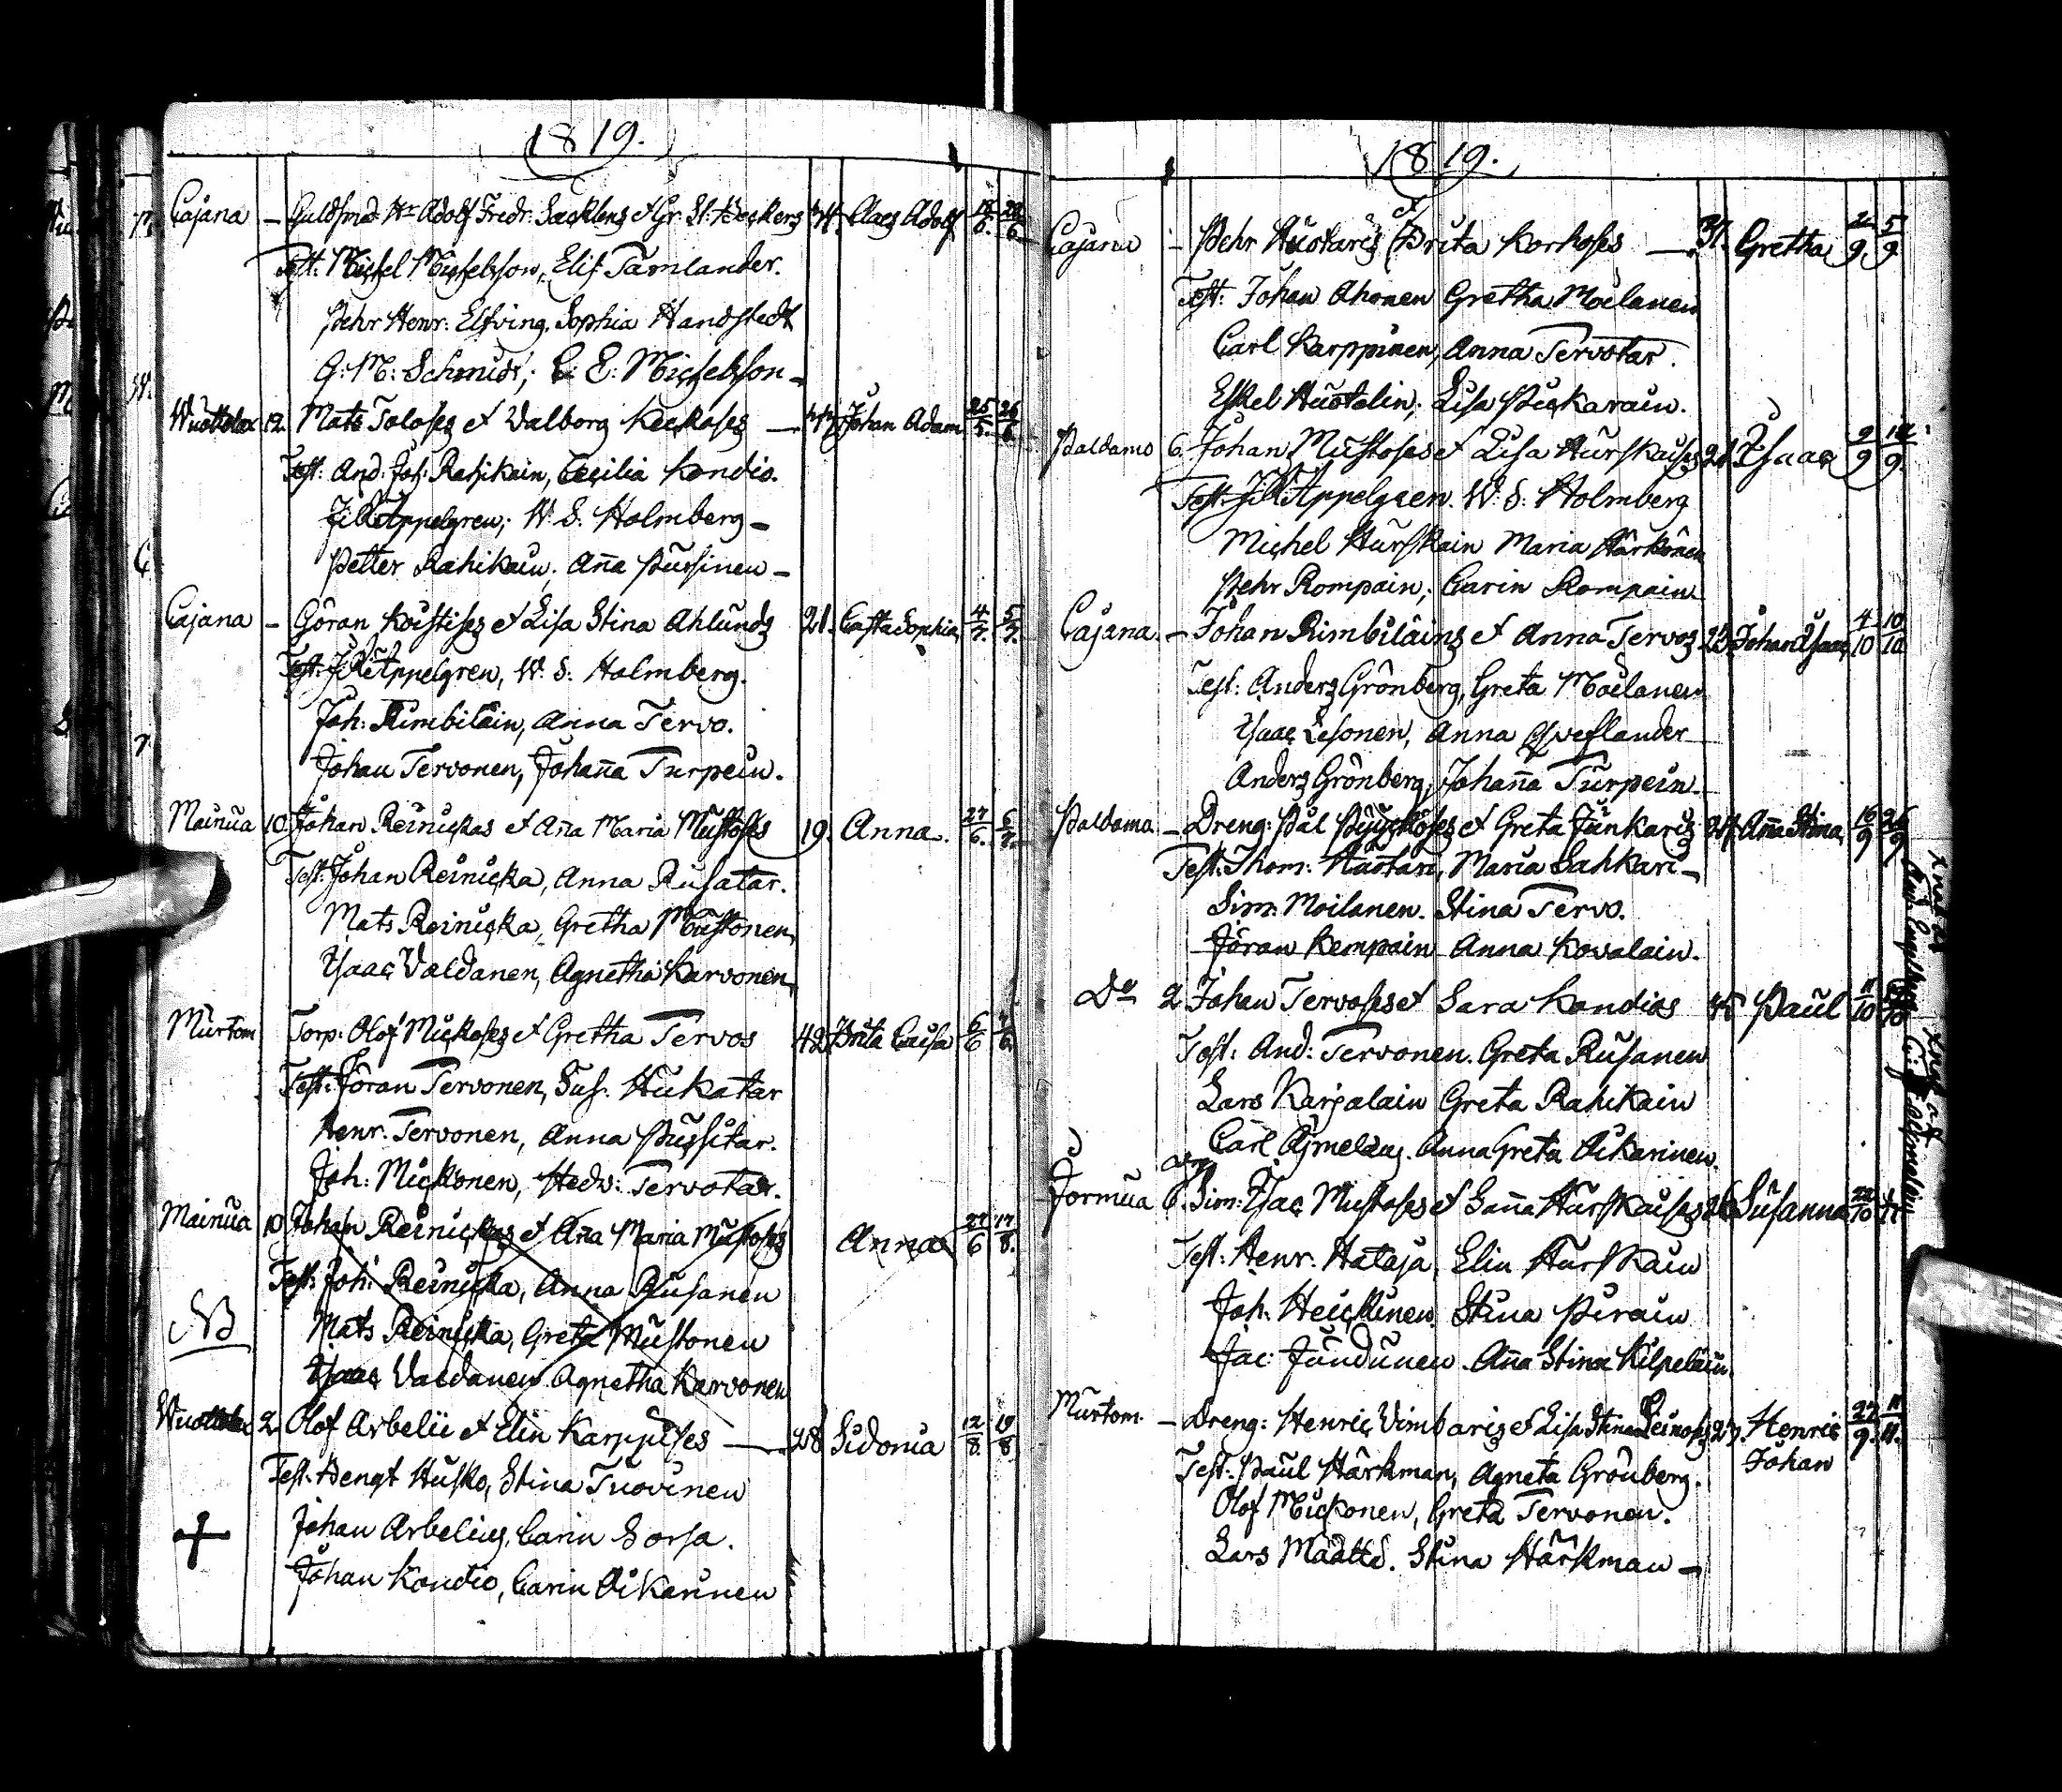 1819.
Cajana – Guldsmed Hr Adolf Fredr: Sacklens et Gr. St: Beckers 24. Claes Adolf 18/6. 20/6
Test: Michel Michelsson, Elis: Tamlander.
Pehr Henr: Elfving, Sophia Handstedt
G: M: Schmidt; C: E: Michelsson –
12. Mats Toloses et Valborg Keckoses – 44 Johan Adam 25/5. 26/6.
Test: And: Joh: Rahikain, Cecilia Kondio.
Appelgren; W. S. Holmberg –
Petter Rahikain; Aña Pursinen –
Cajana – Göran Koistises et Lisa Stina Ahlunds 21. Casta Sophia 4/7. 5/7.
Test: Appelgren, W. S: Holmberg.
Joh: Rimbiläin, Anna Tervo.
Johan Tervonen, Johaña Turpein.
Mainua 10. Johan Reinickas et Aña Maria Mustoses 19. Anna. 27/6. 6/7.
Test: Johan Reinicka, Anna Rusatar.
Mats Reinicka, Gretha Mustonen
Ysaac Valdanen, Agnetha Karvonen
Murtom Torp: Olof Mickoses et Gretha Tervos 42 Brita Caisa 6/6 7/6.
Test: Jöran Tervonen, Sus. Hukatar
Henr. Tervonen, Anna Pussitar.
Joh: Mickonen, Hedv: Tervotar.
Mainua 10 Johan Reinickas et Aña Maria Mustoses Anna 27/6 17/8.
Test: Joh: Reinicka, Anna Rusanen
NB Mats Reinicka, Greta Mustonen
Ysaac Valdanen Agnetha Karvonen
2 Olof Arbelii et Elin Karppises – 28 Sidonia 12/8. 19/8
Test: Bengt Husko, Stina Tuovinen
Johan Arbelius, Carin Sorsa.
Johan Kondio, Carin Oikarinen
1819.
Cajana – Pehr Huotaris et Brita Korhoses – 37. Gretha 2/9 5/9
Test: Johan Ahonen Gretha Moilanen
Carl Karppinen, Anna Tervotar.
Eskel Huotelin; Lisa Pickarain.
Paldamo 6. Johan Mustoses et Lisa Hurskaises 21 Ysaac 9/9 12/9.
Test: Appelgren. W. S. Holmberg
Michel Hurskain Maria Härkönen
Pehr Rompain; Carin Rompain
Cajana. – Johan Rimbiläins et Anna Tervos 23. Johan Ysaac 4/10 10/10
Test: Anders Grönberg, Greta Moilanen
Ysaac Lesonen, Anna Qveflander
Anders Grönberg, Johaña Turpein
Paldama – Dreng: Pål Pyycköses et Greta Junkaris 24. Aña Stina 16/9 26/9
Test: Thom: Huotari, Maria Sahkari –
Sim: Moilanen. Stina Tervo.
Jöran Kempain Anna Kovalain.
Do 2 Johan Tervoses et Sara Kondios 45 Paul 11/10
Test: And: Tervonen. Greta Rusanen
Lars Karjalain Greta Rahikain
Carl Ajmelaus. Anna Greta Oikarinen.
Jormua 6. Sim: Ysac Mustoses et Sanna Hurskaises 26 Susanna 22/10
Test: Henr. Hataja, Elin Hurskain
Joh. Heickinen. Stina Pirain
Jac: Jundunen. Aña Stina Kilpeläin.
Murtom. – Dreng: Henric Vimbaris et Lisa Stina Leinoses 27. Henric Johan 27/9. 11/11.
Test: Paul Härkman, Agneta Grönberg.
Olof Mickonen, Greta Tervonen.
Lars Määttä. Stina Härkman –